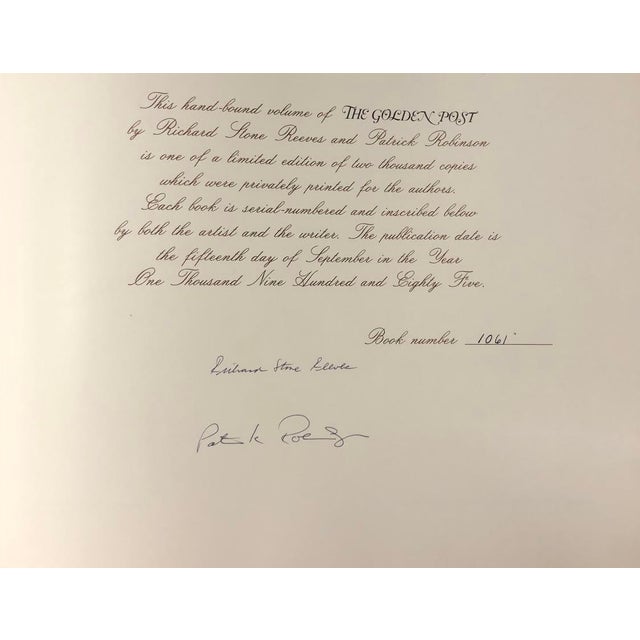 This hand-bound volume of THE GOLDEN POST
by Richard Stone Reeves and Patrick Robinson
is one of a limited edition of two thousand copies
which were privately printed for the authors.
Each book is serial-numbered and inscribed below
by both the artist and the writer. The publication date is
the fifteenth day of September in the Year
One Thousand Nine Hundred and Eighty Five.
Book number 1061
Richard Stone Reeves
Patrick Robinson